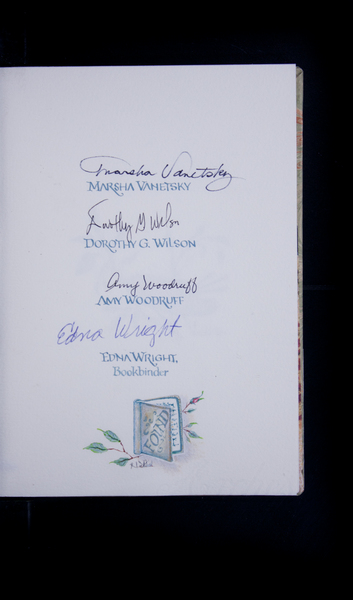 Marsha Vanetsky
MARSHA VANETSKY
Dorothy G Wilson
DOROTHY G. WILSON
Amy Woodruff
AMY WOODRUFF
Edna Wright
EDNA WRIGHT,
Bookbinder
FOUND